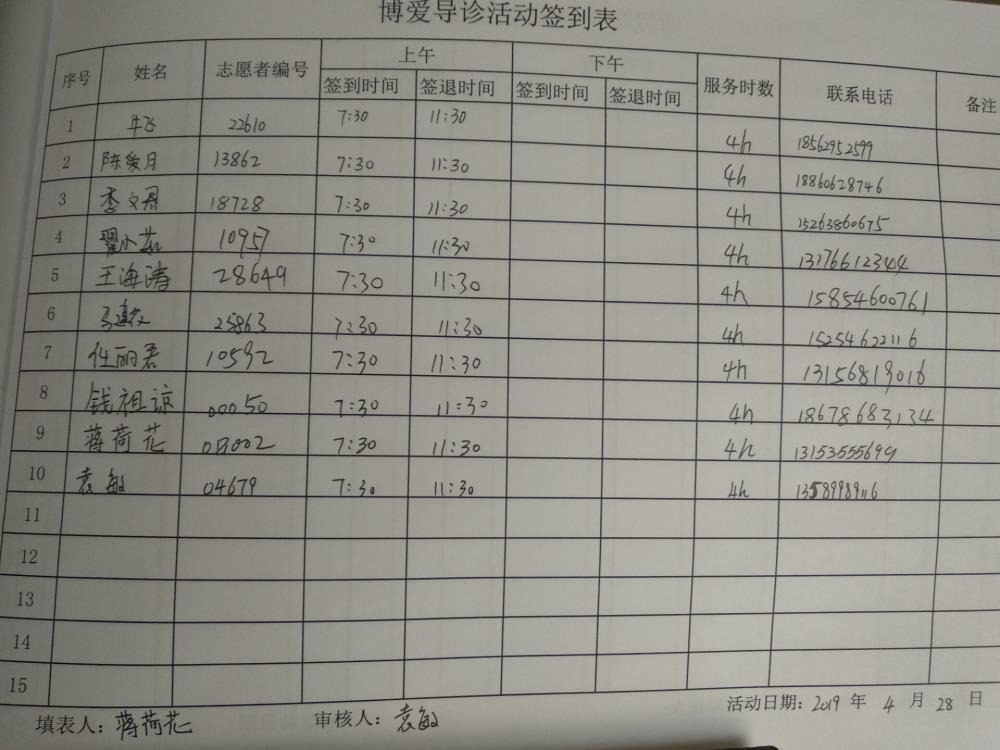 博爱导诊活动签到表
序号 姓名 志愿者编号 上午 下午 服务时数 联系电话 备注
签到时间 签退时间 签到时间 签退时间
1 牛飞 22610 7:30 11:30 4h 18562952599
2 陈爱月 13862 7:30 11:30 4h 18860628746
3 李文君 18728 7:30 11:30 4h 15263860675
4 翟小 10957 7:30 11:30 4h 13176612344
5 王海涛 28649 7:30 11:30 4h 15854600761
6 25863 7:30 11:30 4h 15254622116
7 任丽君 10592 7:30 11:30 4h 13156819016
8 钱祖谅 00050 7:30 11:30 4h 18678683134
9 蒋荷花 7:30 11:30 4h 13153555699
10 袁敏 04679 7:30 11:30 4h 13589989116
11
12
13
14
15
活动日期：2019 年 4 月 28 日
填表人：蒋荷花 审核人：袁敏